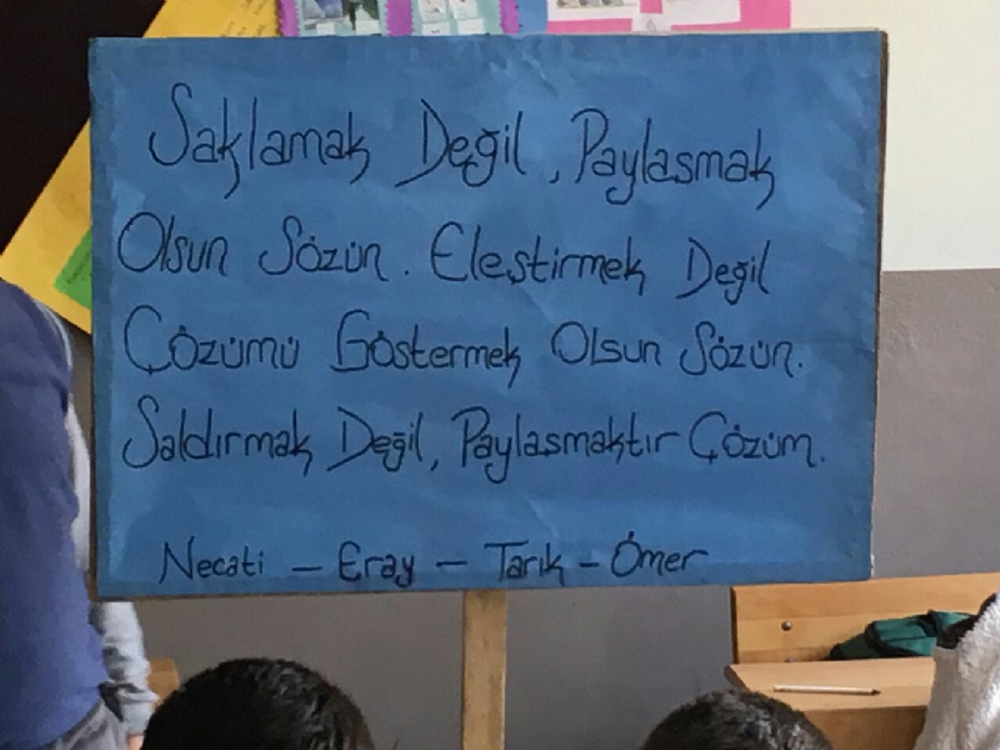 Saklamak Değil, Paylasmak
Olsun Sözün. Eleştirmek Değil
Çözümü Göstermek Olsun Sözün.
Saldırmak Değil, Paylasmaktır Çözüm.
Necati - Eray - Tarık - Ömer